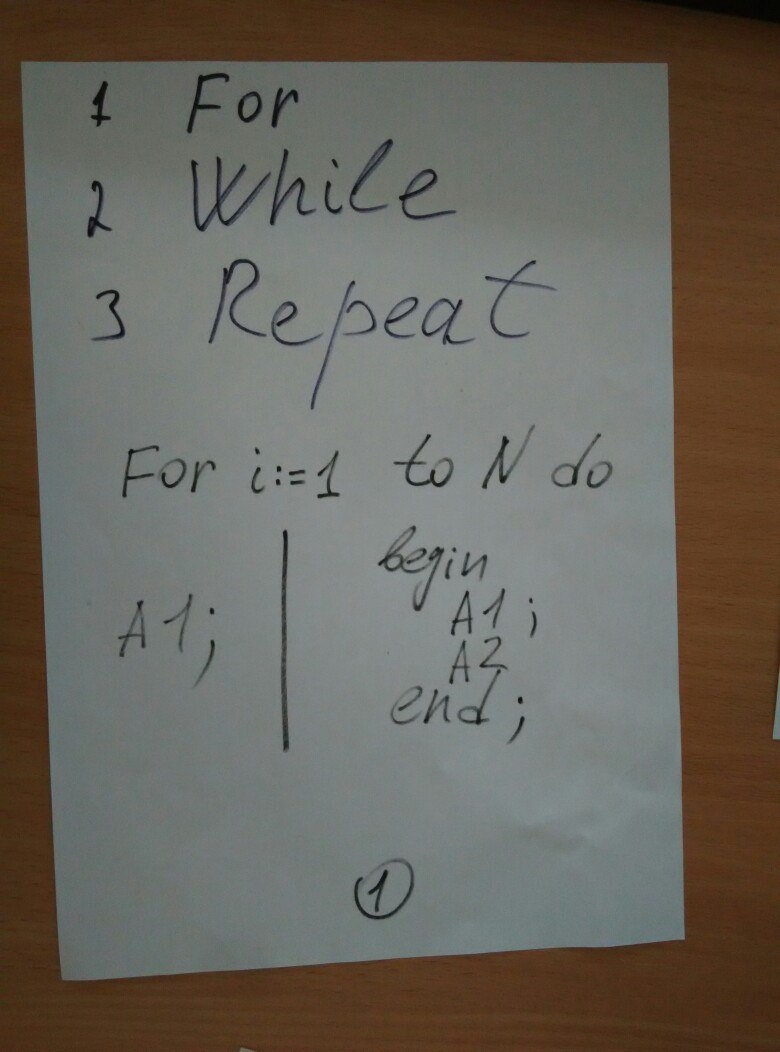 1 For
2 While
3 Repeat
For i:=1 to N do
A1;
begin
A1;
A2
end;
1